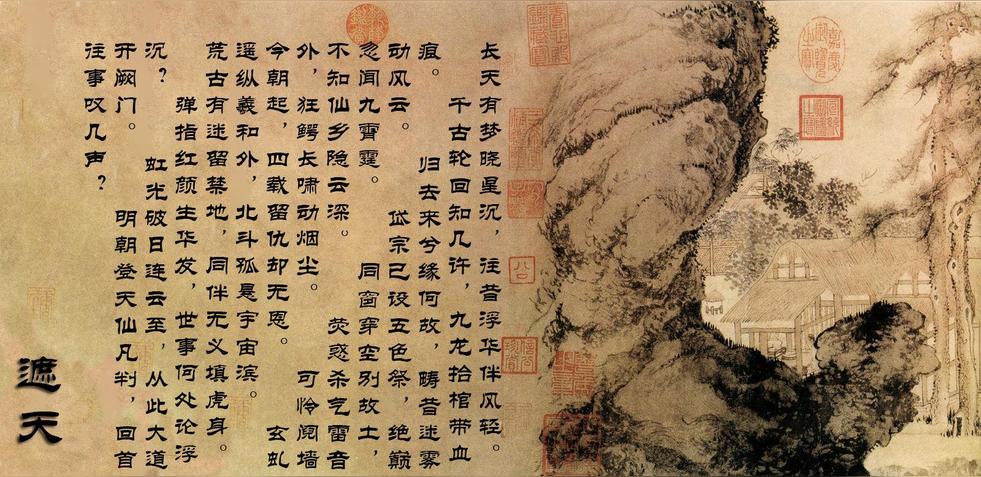 长天有梦晓星沉，往昔浮华伴风轻。
千古轮回知几许，九龙拾棺带血
痕。 归去来兮缘何故，畴昔迷雾
动风云。 岱宗已设五色祭，绝巅
忽闻九霄霆。 同窗穿空别故土，
不知仙乡隐云深。 荧惑杀气雷音
外，狂鳄长啸动烟尘。 可怜阋墙
今朝起，四载留仇却无恩。 玄虬
遥纵羲和外，北斗孤悬宇宙滨。
荒古有迷留禁地，同伴无义填虎身。
弹指红颜生华发，世事何处论浮
沉？ 虹光破日连云至，从此大道
开阙门。 明朝登天仙凡判，回首
往事叹几声？
遮天